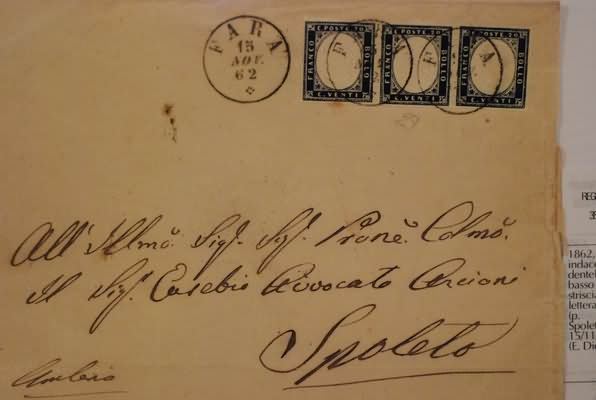 FARA
15
NOV.
62
C. POSTE 20
FRANCO
BOLLO
C. VENTI
C. POSTE 20
FRANCO
BOLLO
C. VENTI
C. POSTE 20
FRANCO
BOLLO
C. VENTI
All' Illmo. Sigr. Sigr. Prone. Colmo.
Il Sigr. Eusebio Avvocato Arcioni
Spoleto
Umbria
REG
1862,
indaco
dentel
basso
striscia
lettera
(p.
Spolet
15/11
(E. Die